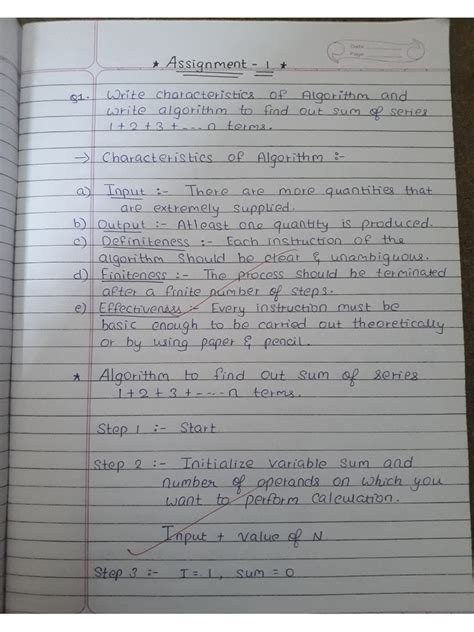 Date
Page
★ Assignment - 1 ★
Q1. Write characteristics of Algorithm and
write algorithm to find out sum of series
1+2+3+----n terms.
→ Characteristics of Algorithm :-
a) Input :- There are more quantities that
are extremely supplied.
b) Output :- Atleast one quantity is produced.
c) Definiteness :- Each instruction of the
algorithm should be clear & unambiguous.
d) Finiteness :- The process should be terminated
after a finite number of steps.
e) Effectiveness :- Every instruction must be
basic enough to be carried out theoretically
or by using paper & pencil.
★ Algorithm to find out sum of series
1+2+3+----n terms.
Step 1 :- Start
Step 2 :- Initialize variable sum and
number of operands on which you
want to perform calculation.
Input + value of N
Step 3 :- I = 1, sum = 0